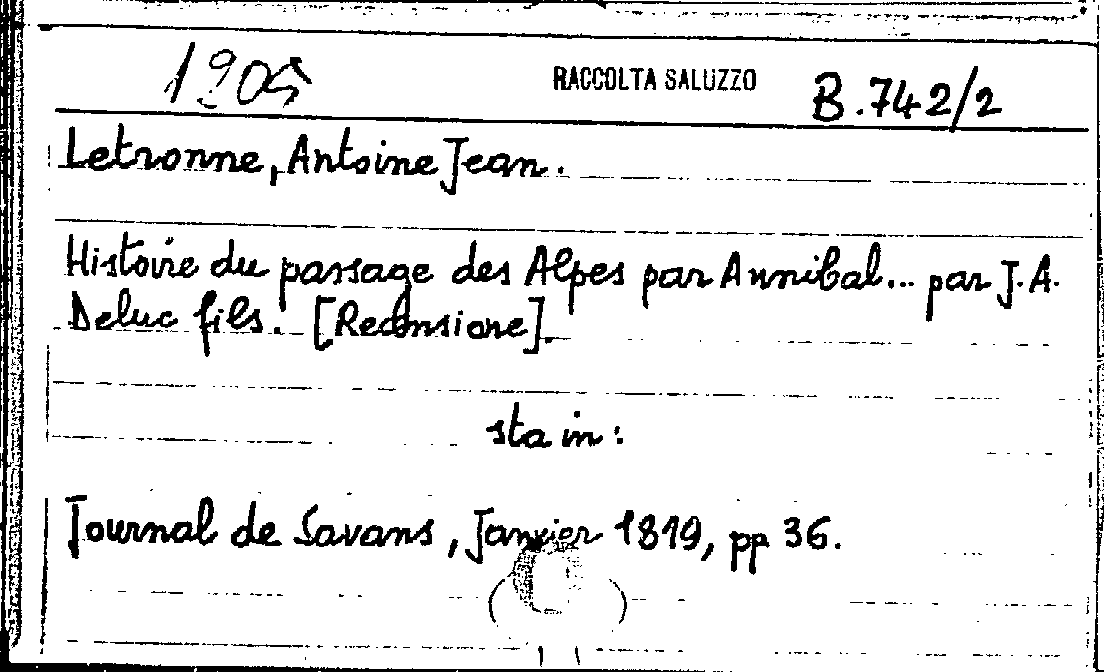 1905 RACCOLTA SALUZZO B.742/2
Letronne, Antoine Jean.
Histoire du passage des Alpes par Annibal... par J.A.
Deluc fils. [Recensione].
sta in:
Journal de Savans, Janvier 1819, pp 36.